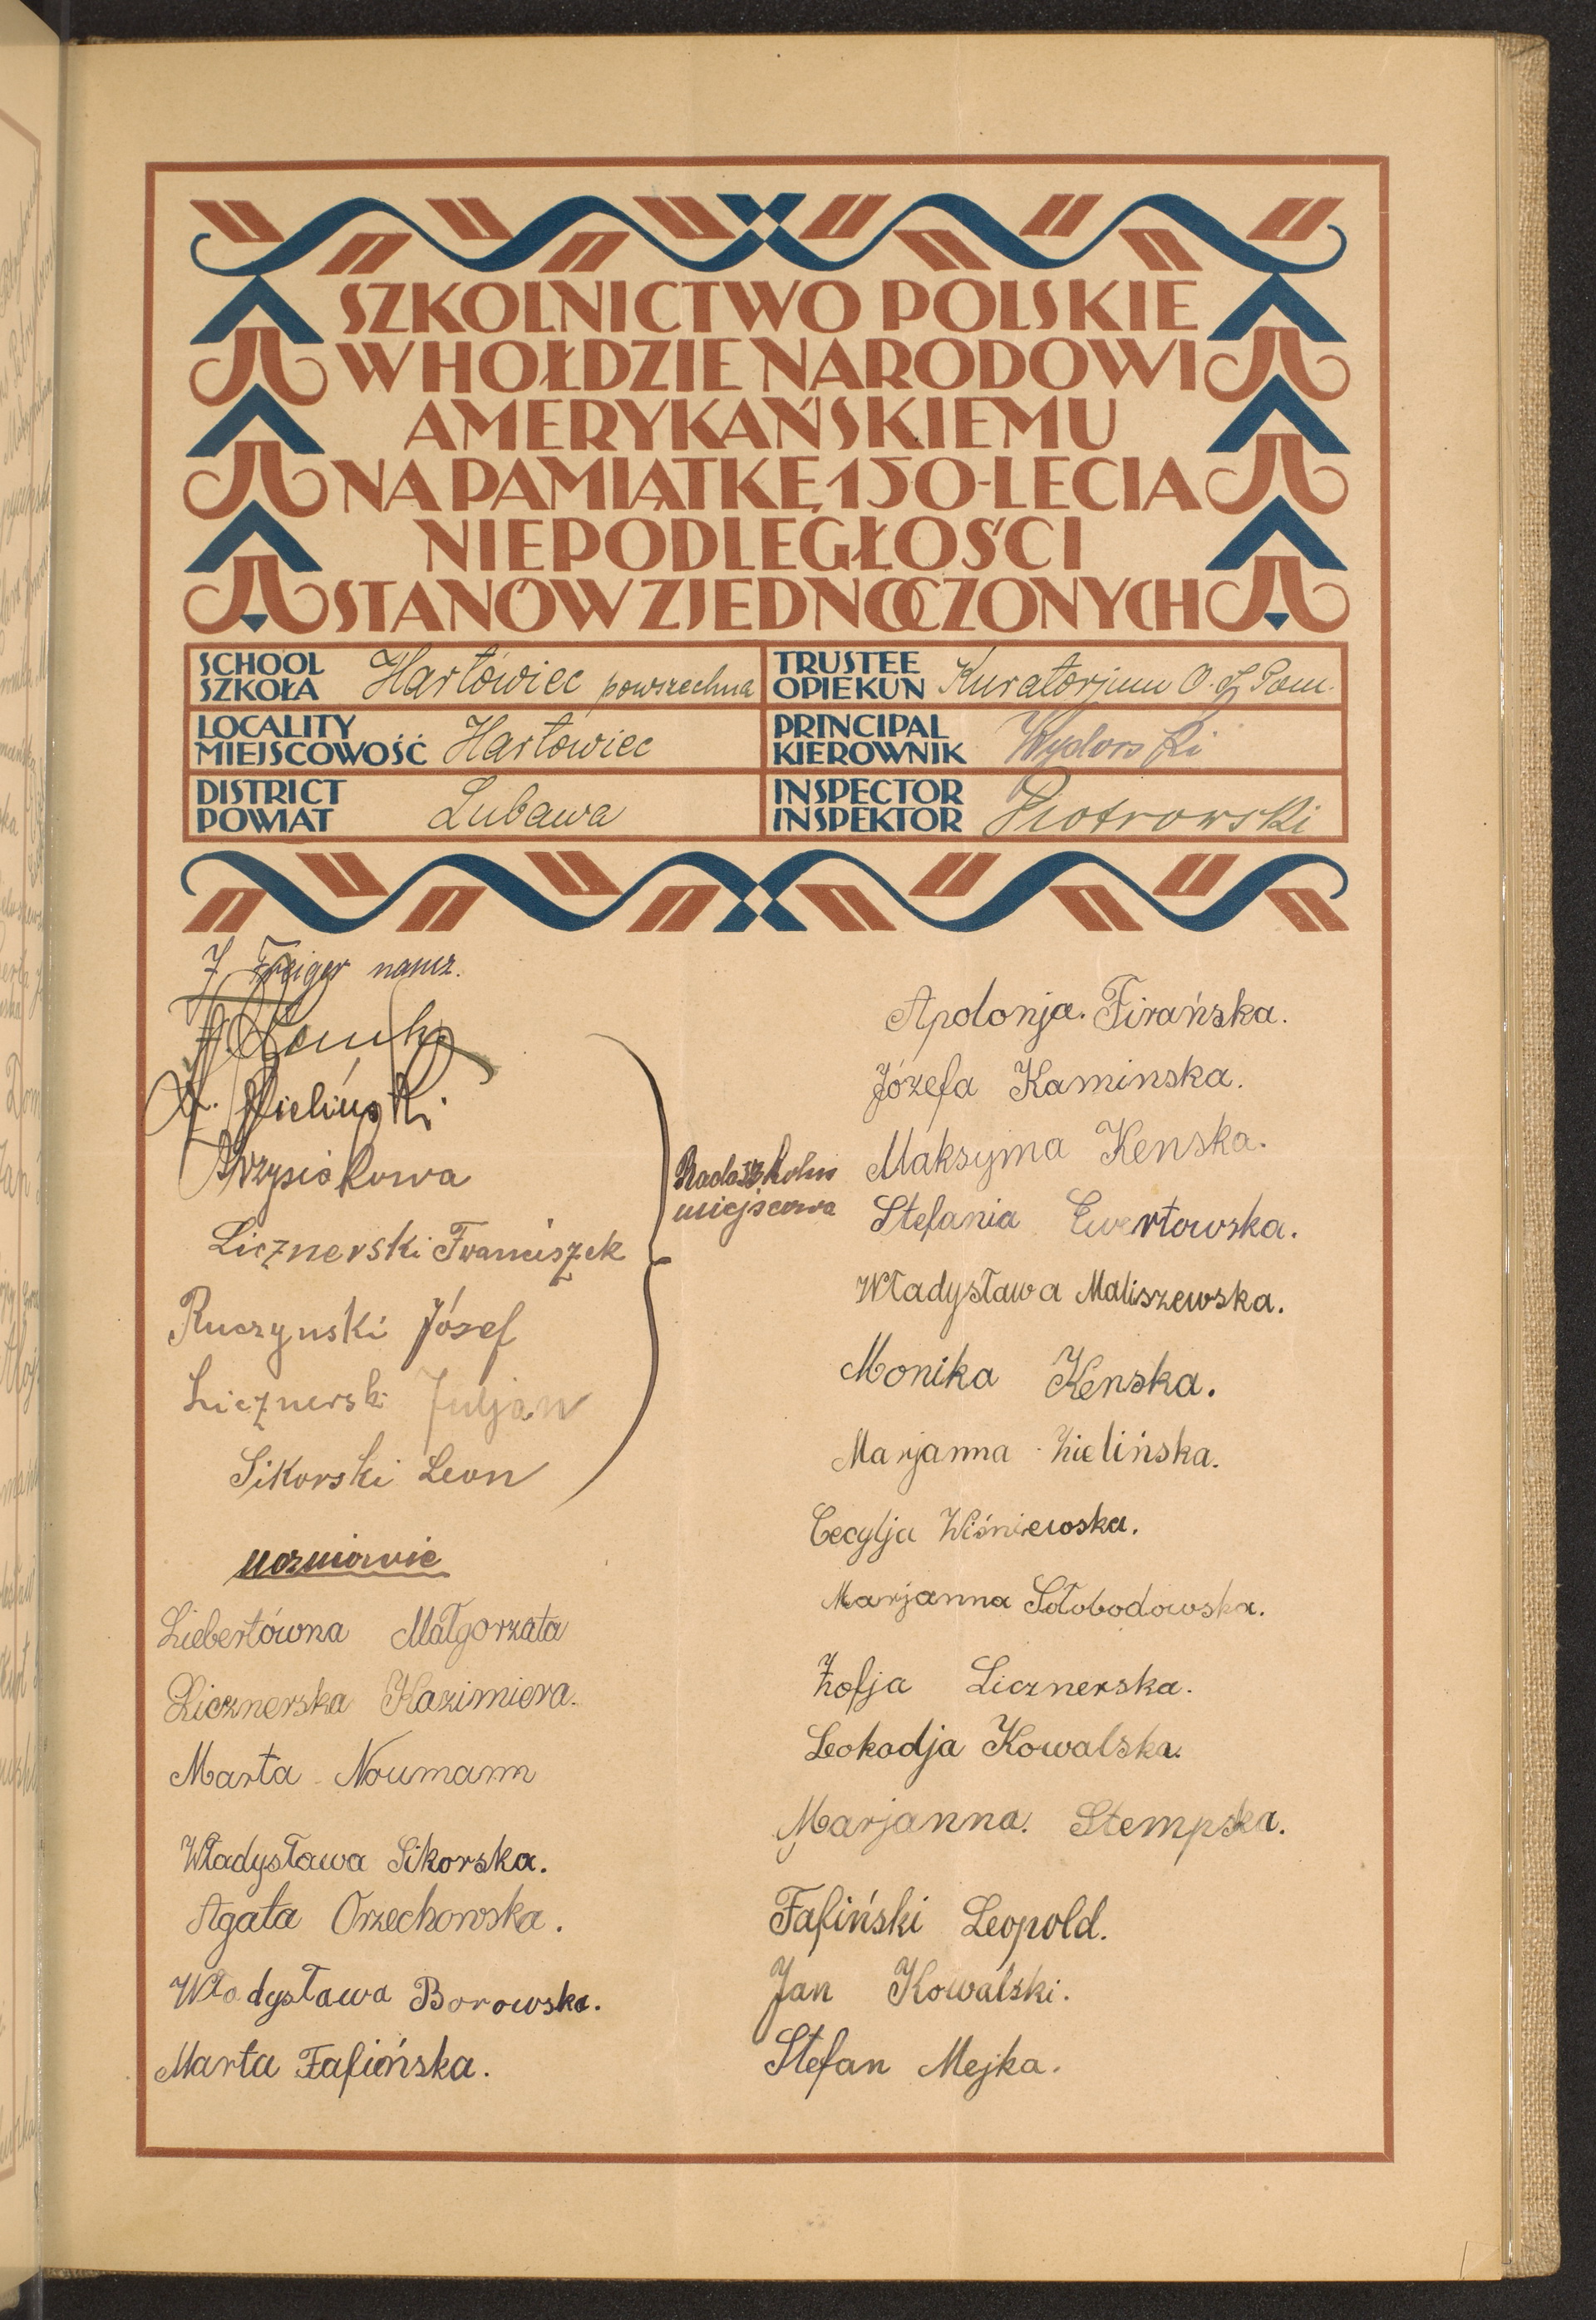 SZKOLNICTWO POLSKIE
W HOŁDZIE NARODOWI
AMERYKAŃSKIEMU
NA PAMIĄTKĘ 150-LECIA
NIEPODLEGŁOŚCI
STANÓW ZJEDNOCZONYCH
SCHOOL
SZKOŁA Hartowiec powszechna
TRUSTEE
OPIEKUN Kuratorjum O. S. Pom.
LOCALITY
MIEJSCOWOŚĆ Hartowiec
PRINCIPAL
KIEROWNIK
DISTRICT
POWIAT Lubawa
INSPECTOR
INSPEKTOR Piotrowski
J naucz.
Zieliński
Licznerski Franciszek
Ruczynski Józef
Licznerski Juljan
Sikorski Leon
Rada szkolna
miejscowa
uczniowie
Liebertówna Małgorzata
Licznerska Kazimiera.
Marta Noumann
Władysława Sikorska.
Agata Orzechowska.
Władysława Borowska.
Marta Fafińska.
Apolonja. Firańska.
Józefa Kaminska.
Maksyma Kenska.
Stefania Ewertowska.
Władysława Maliszewska.
Monika Kenska.
Marjanna Zielińska.
Cecylja Wiśniewska.
Marjanna Słobodowska.
Zofja Licznerska.
Leokadja Kowalska.
Marjanna. Stempska.
Fafiński Leopold.
Jan Kowalski.
Stefan Mejka.